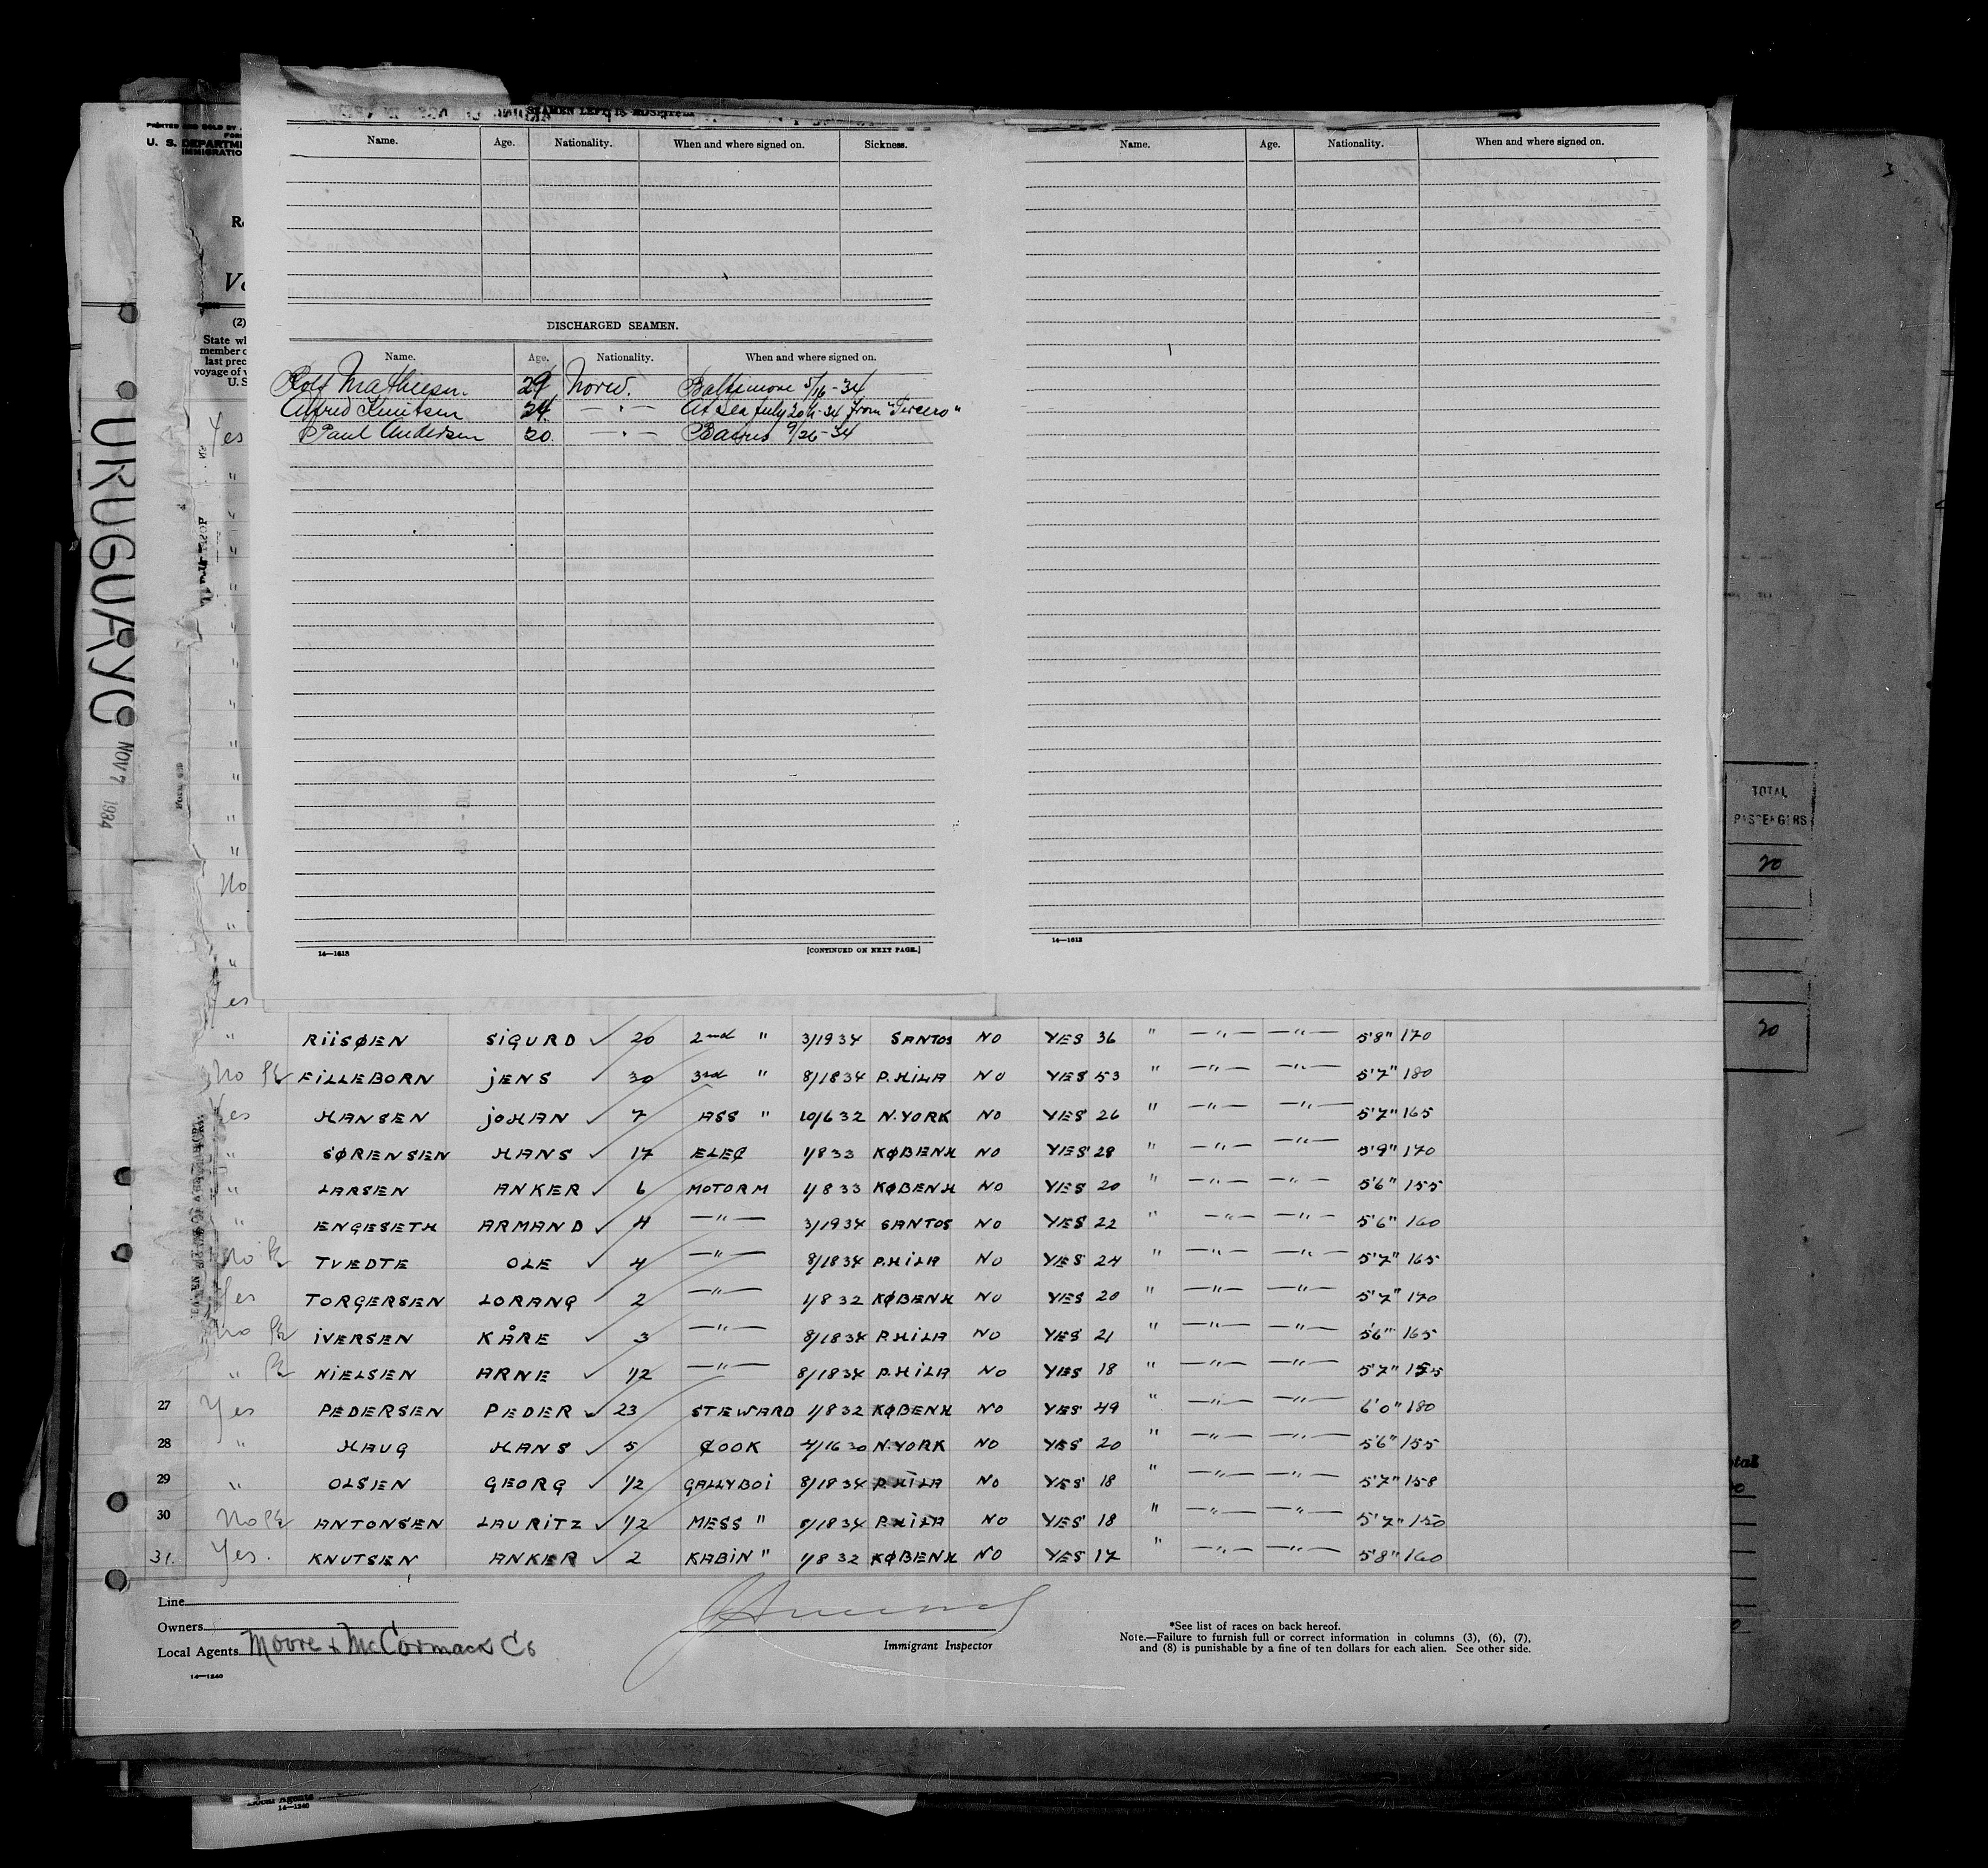 PRINTED AND SOLD BY
U. S. DEPARTM
IMMIGRATIO
(2)
State wh
member o
last prec
voyage of v
U. S
Yes
No
Yes
URUGUAYO NOV 7 1934
SEAMEN LEFT IN HOSPITAL
Name. Age. Nationality. When and where signed on. Sickness.
Name. Age. Nationality. When and where signed on.
DISCHARGED SEAMEN.
Name. Age. Nationality. When and where signed on.
Rolf Mathiesen. 29 Norw. Baltimore 5/16-34
Alfred Knutsen 24 —"— At sea July 20th-34 from "Tercero"
Paul Andersen 20. —"— Baires 9/26-34
14—1613 [CONTINUED ON NEXT PAGE.]
14—1613
3
TOTAL
PASSENGERS
20
20
" RIISØEN SIGURD ✓ 20 2nd " 3/19 34 SANTOS NO YES 36 " —"— —"— 5'8" 170
No FILLEBORN JENS ✓ 30 3rd " 8/18 34 P.HILA NO YES 53 " —"— —"— 5'7" 180
Yes HANSEN JOHAN ✓ 7 ASS " 10/6 32 N.YORK NO YES 26 " —"— —"— 5'7" 165
" SØRENSEN HANS ✓ 17 ELEC 1/8 33 KØBENH NO YES 28 " —"— —"— 5'9" 170
" LARSEN ANKER ✓ 6 MOTORM 1/8 33 KØBENH NO YES 20 " —"— —"— 5'6" 155
" ENGESETH ARMAND ✓ 4 —"— 3/19 34 SANTOS NO YES 22 " —"— —"— 5'6" 160
No TVEDTE OLE ✓ 4 —"— 8/18 34 P.HILA NO YES 24 " —"— —"— 5'7" 165
Yes TORGERSEN LORANG ✓ 2 —"— 1/8 32 KØBENH NO YES 20 " —"— —"— 5'7" 170
No IVERSEN KÅRE ✓ 3 —"— 8/18 34 P.HILA NO YES 21 " —"— —"— 5'6" 165
" NIELSEN ARNE ✓ 1/2 —"— 8/18 34 P.HILA NO YES 18 " —"— —"— 5'7" 155
27 Yes PEDERSEN PEDER ✓ 23 STEWARD 1/8 32 KØBENH NO YES 49 " —"— —"— 6'0" 180
28 " HAUG HANS ✓ 5 COOK 4/16 30 N.YORK NO YES 20 " —"— —"— 5'6" 155
29 " OLSEN GEORG ✓ 1/2 GALLYBOI 8/18 34 P.HILA NO YES 18 " —"— —"— 5'7" 158
30 No ANTONSEN LAURITZ ✓ 1/2 MESS " 8/18 34 P.HILA NO YES 18 " —"— —"— 5'7" 150
31. Yes. KNUTSEN ANKER ✓ 2 KABIN " 1/8 32 KØBENH NO YES 17 " —"— —"— 5'8" 160
Line
Owners
Local Agents Moore & McCormack Co
14—1240
Immigrant Inspector
*See list of races on back hereof.
Note.—Failure to furnish full or correct information in columns (3), (6), (7),
and (8) is punishable by a fine of ten dollars for each alien. See other side.
Local Agents
14—1240